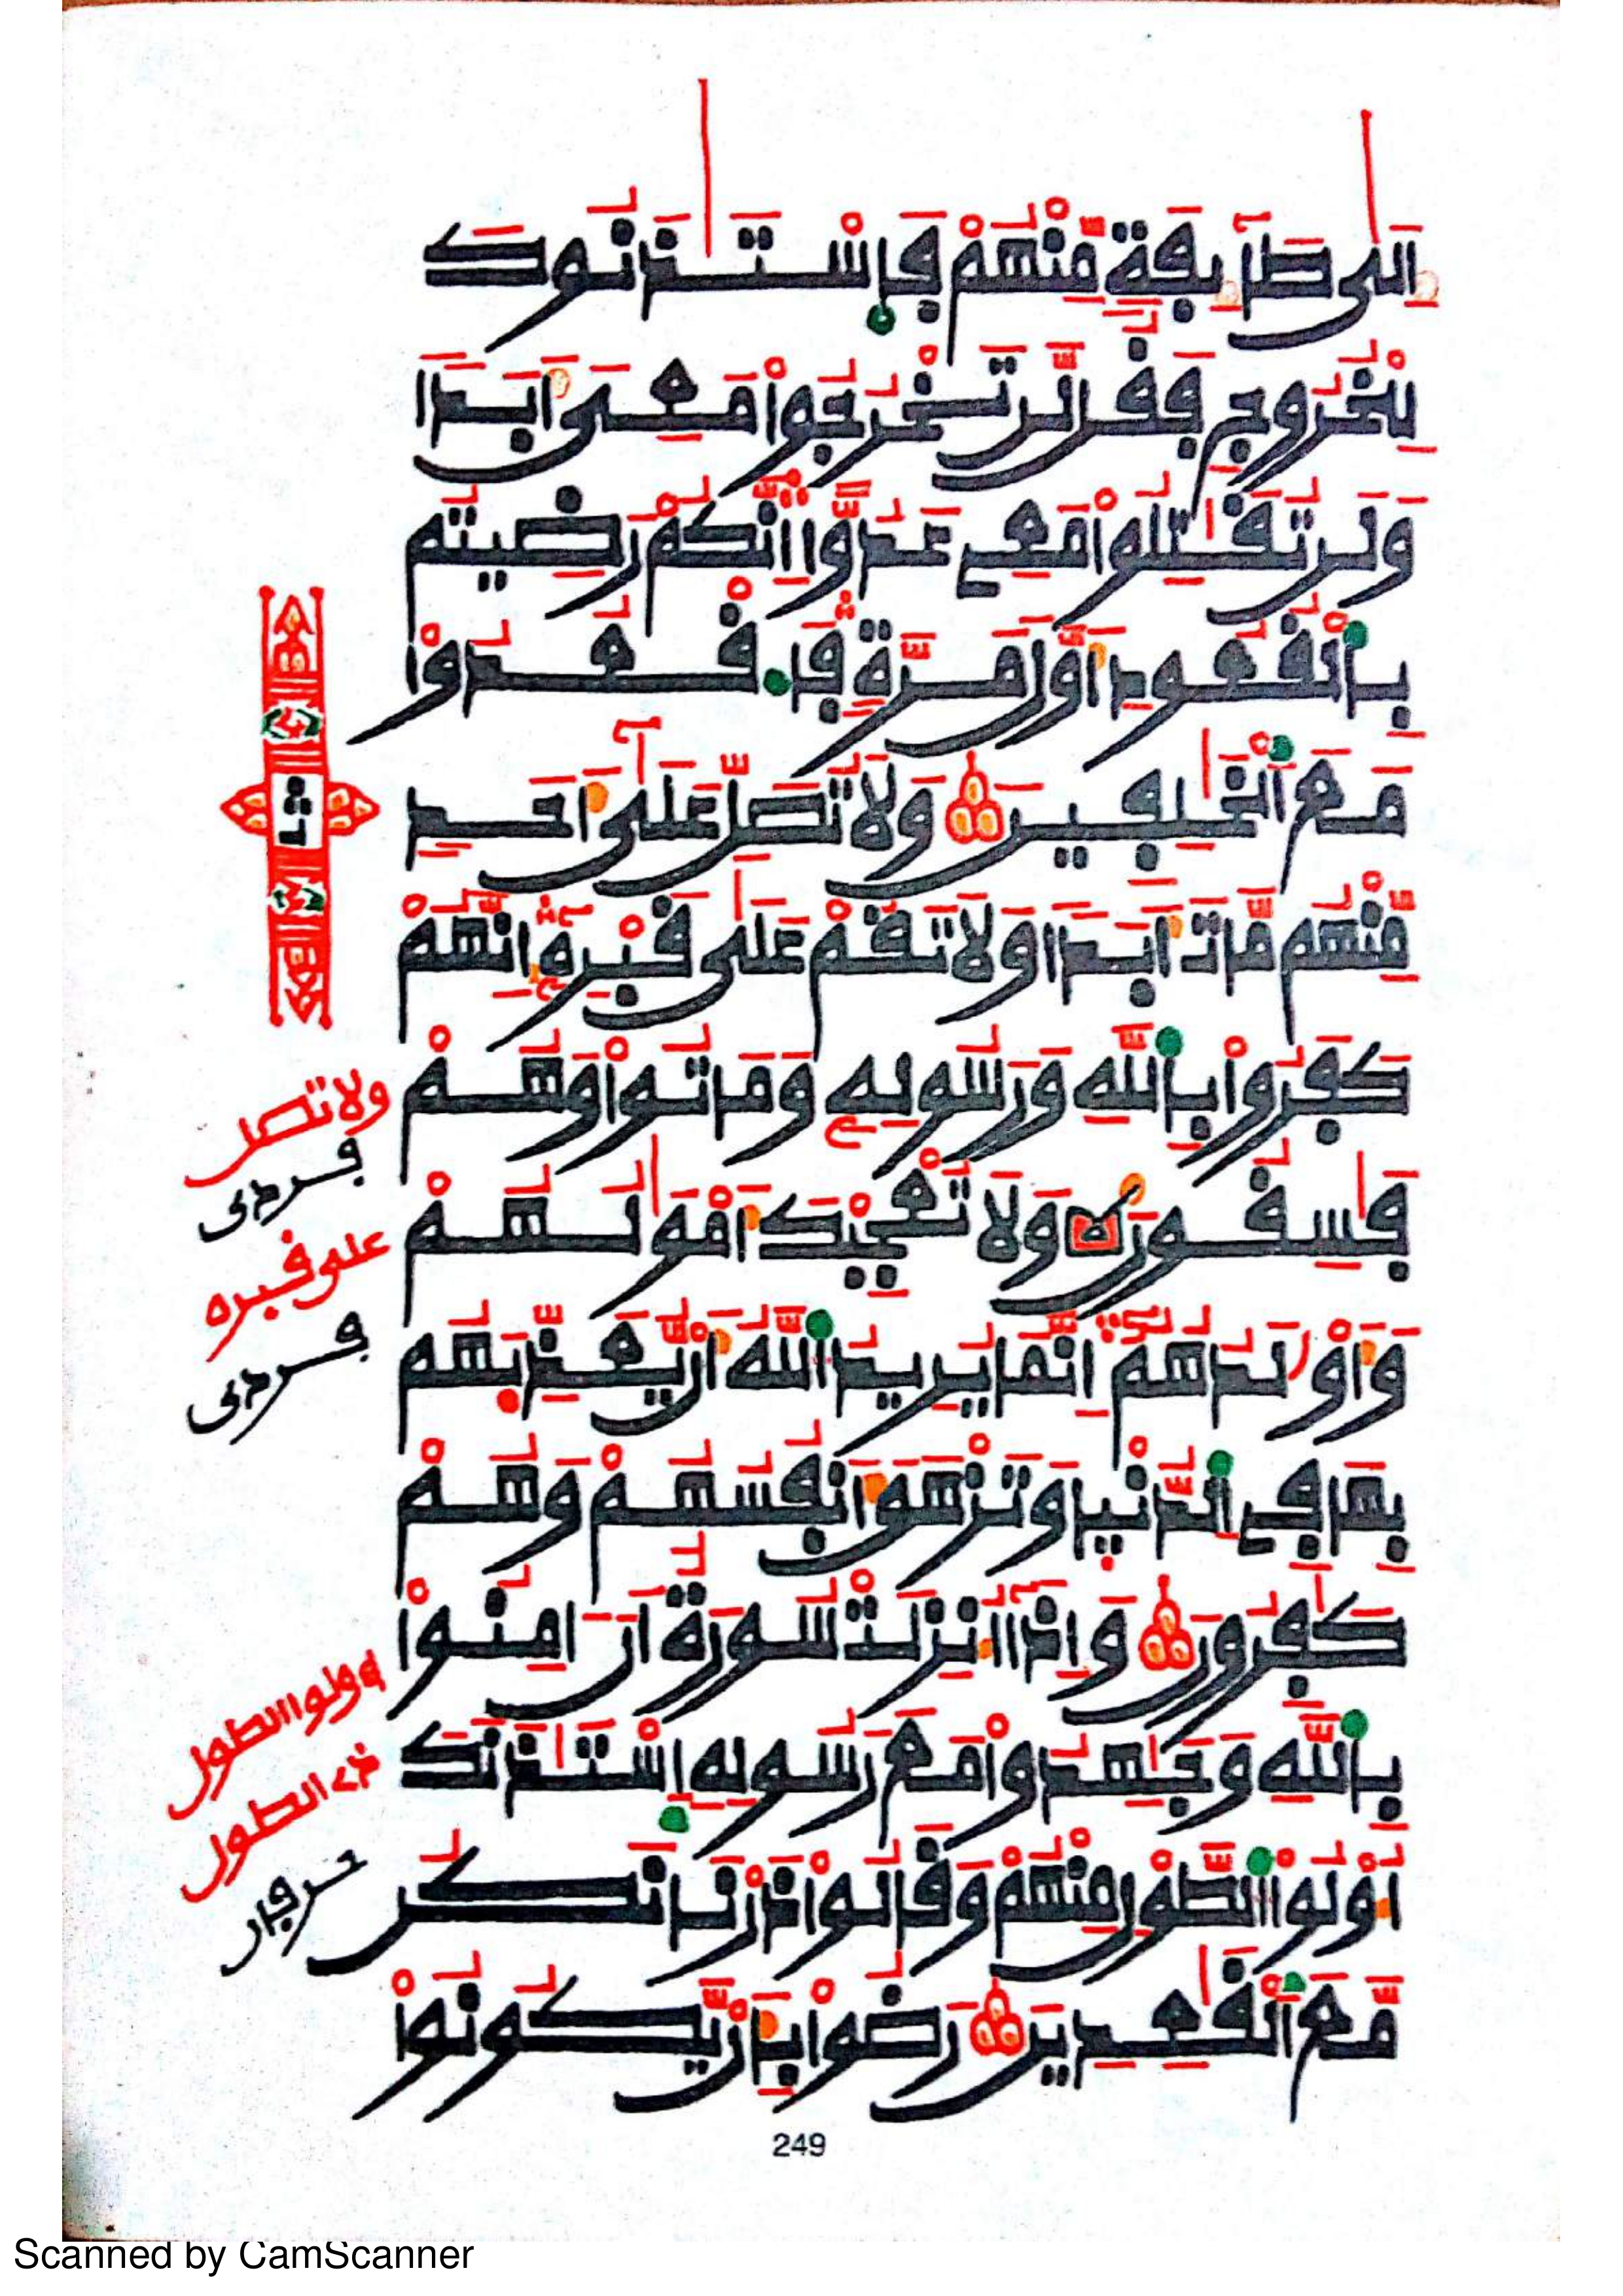 اِلَىٰ طَآئِفَةٖ مِّنْهُمْ فَاسْتَـْٔذَنُوكَ
لِلْخُرُوجِ فَقُل لَّن تَخْرُجُواْ مَعِيَ أَبَداٗ
وَلَن تُقَٰتِلُواْ مَعِيَ عَدُوّاً اِنَّكُمْ رَضِيتُم
بِالْقُعُودِ أَوَّلَ مَرَّةٖ فَاقْعُدُواْ
مَعَ اَلْخَٰلِفِينَ وَلَا تُصَلِّ عَلَىٰٓ أَحَدٖ
مِّنْهُم مَّاتَ أَبَداٗ وَلَا تَقُمْ عَلَىٰ قَبْرِهِۦٓ إِنَّهُمْ
كَفَرُواْ بِاللَّهِ وَرَسُولِهِۦ وَمَاتُواْ وَهُمْ
فَٰسِقُونَ وَلَا تُعْجِبْكَ أَمْوَٰلُهُمْ
وَأَوْلَٰدُهُمُۥٓ إِنَّمَا يُرِيدُ اُللَّهُ أَنْ يُّعَذِّبَهُم
بِهَا فِے اِلدُّنْيَا وَتَزْهَقَ أَنفُسُهُمْ وَهُمْ
كَٰفِرُونَ وَإِذَآ أُنزِلَتْ سُورَةٌ اَنَ اٰمِنُواْ
بِاللَّهِ وَجَٰهِدُواْ مَعَ رَسُولِهِ اِسْتَـْٔذَنَكَ
أُوْلُواْ اُلطَّوْلِ مِنْهُمْ وَقَالُواْ ذَرْنَا نَكُن
مَّعَ اَلْقَٰعِدِينَ رَضُواْ بِأَنْ يَّكُونُواْ
ثمن
ولا تصل
فردى
على قبره
فردى
اولوا الطول
ذى الطول
حرفان
249
Scanned by CamScanner